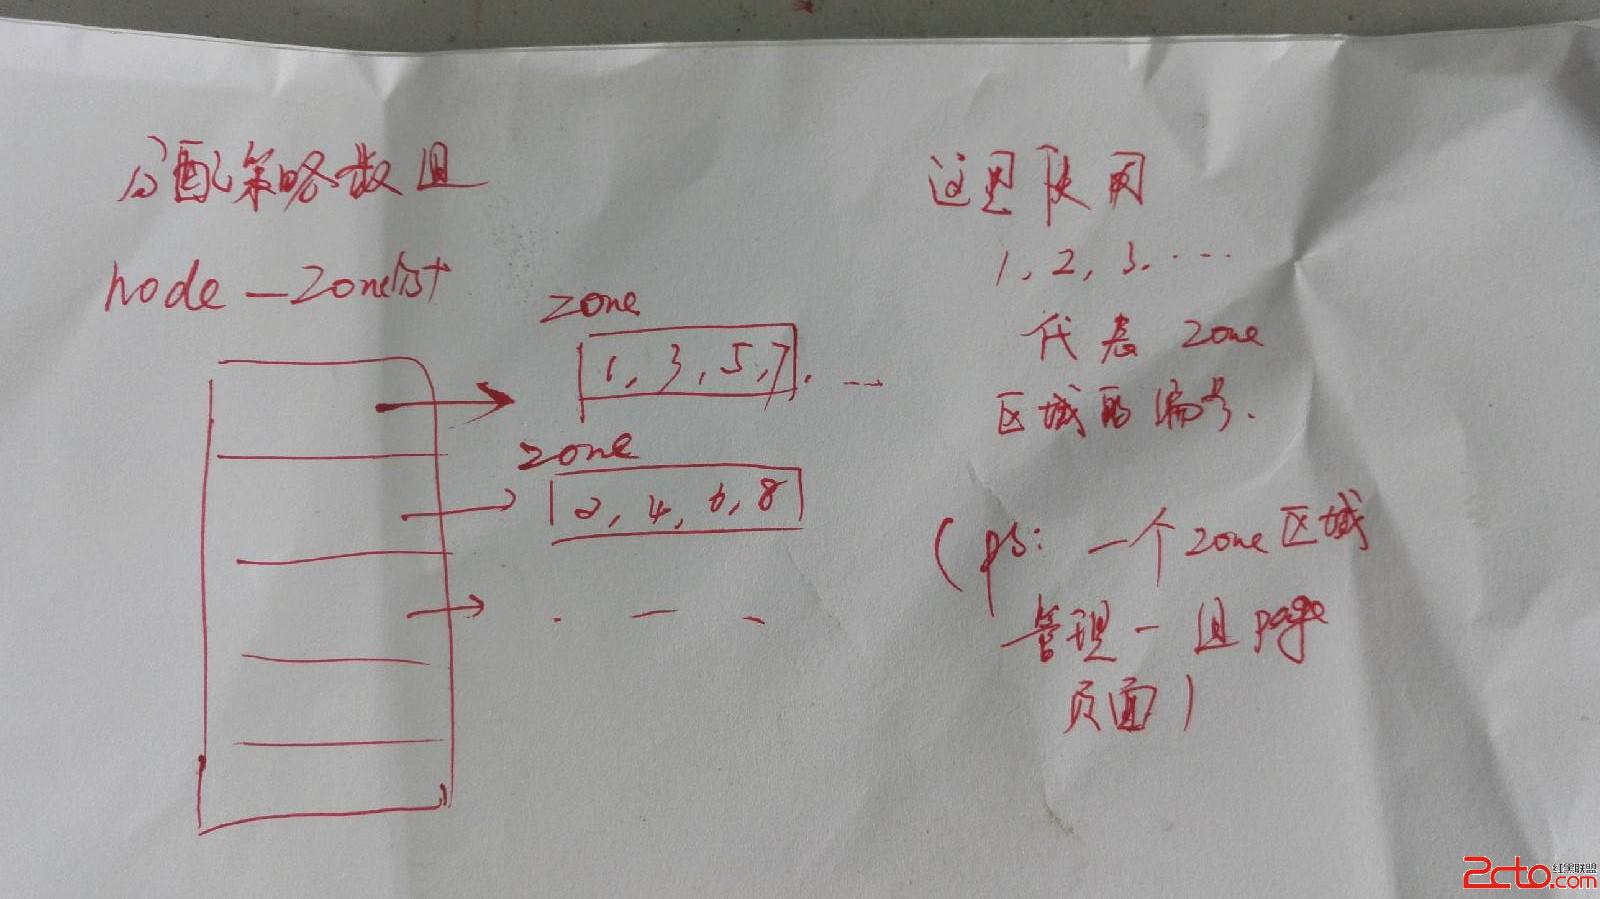 分配策略数组
node_zonelist
zone
1, 3, 5, 7, . ...
zone
2, 4, 6, 8
. — -
这里使用
1, 2, 3. ....
代表 zone
区域的编号.
(ps: 一个zone区域
管理一组page
页面)
2cto.com
红黑联盟